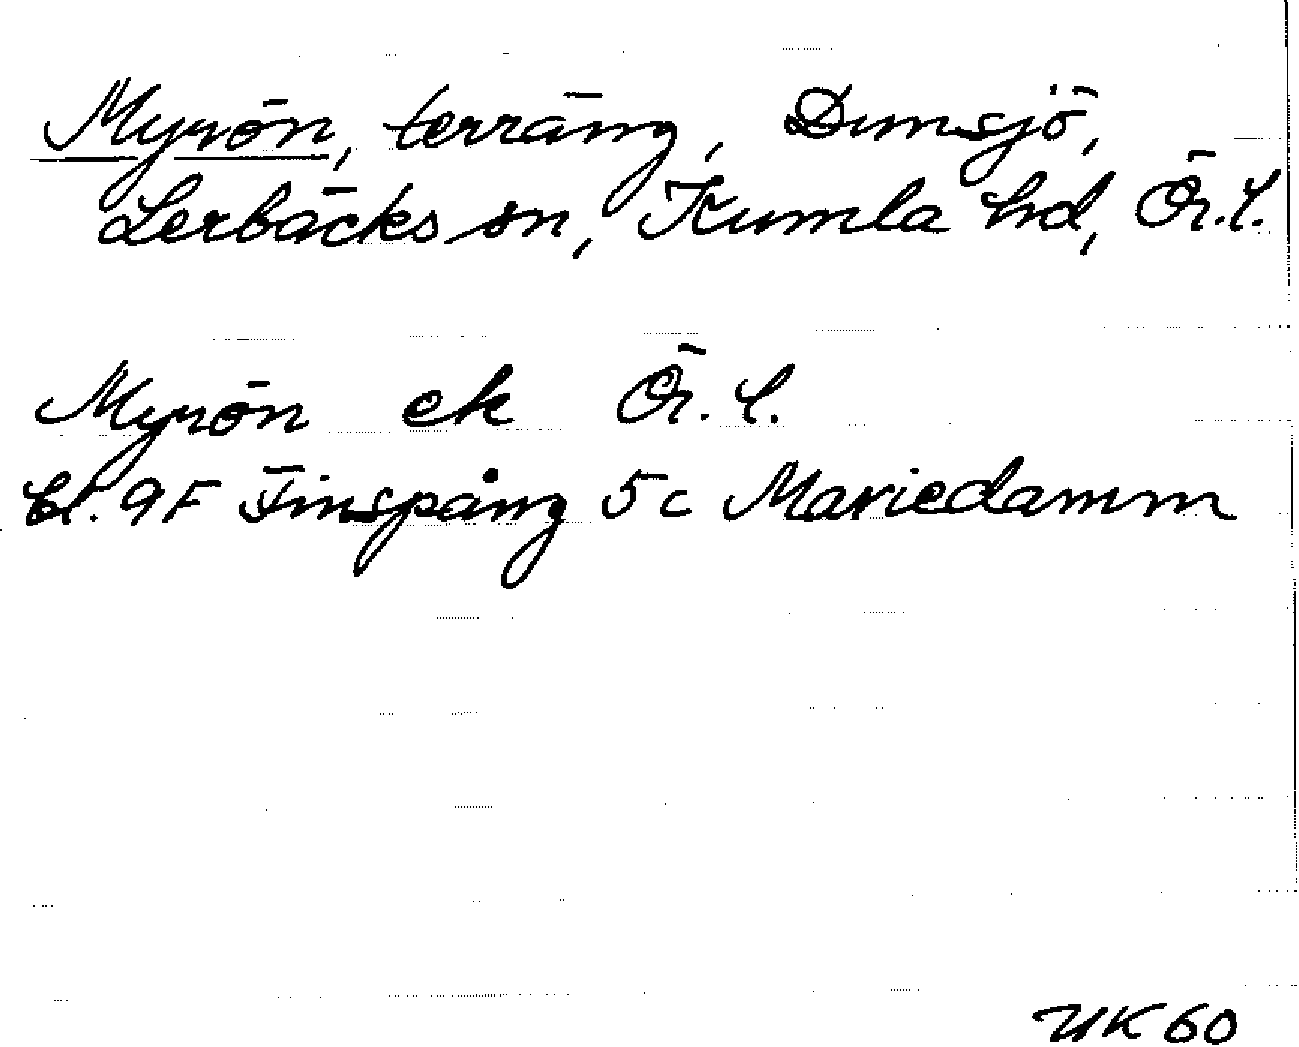 Myrön, terräng, Dunsjö,
Lerbäcks sn, Kumla hd, Ör. l.
Myrön ek Ör. l.
bl. 9F Finspång 5c Mariedamm
UK 60